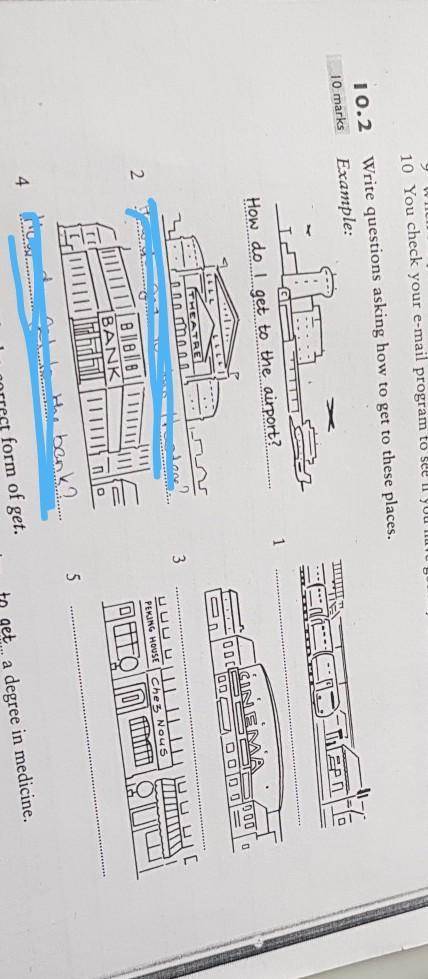 10 You check your e-mail program to see if you have
10.2 Write questions asking how to get to these places.
10 marks
Example:
How do I get to the airport?
1
THEATRE
2
CINEMA
3
BANK
4 the bank?
PEKING HOUSE Chez Nous
5
correct form of get.
to get a degree in medicine.